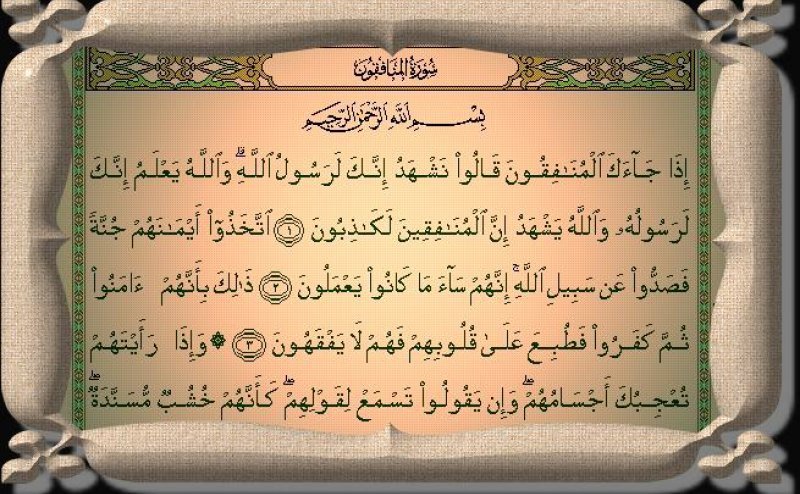 سُورَةُ المُنَافِقُونَ
بِسْمِ اللَّهِ الرَّحْمَٰنِ الرَّحِيمِ
إِذَا جَآءَكَ ٱلْمُنَٰفِقُونَ قَالُوا۟ نَشْهَدُ إِنَّكَ لَرَسُولُ ٱللَّهِ ۗ وَٱللَّهُ يَعْلَمُ إِنَّكَ
لَرَسُولُهُۥ وَٱللَّهُ يَشْهَدُ إِنَّ ٱلْمُنَٰفِقِينَ لَكَٰذِبُونَ ١ ٱتَّخَذُوٓا۟ أَيْمَٰنَهُمْ جُنَّةً
فَصَدُّوا۟ عَن سَبِيلِ ٱللَّهِ ۚ إِنَّهُمْ سَآءَ مَا كَانُوا۟ يَعْمَلُونَ ٢ ذَٰلِكَ بِأَنَّهُمْ ءَامَنُوا۟
ثُمَّ كَفَرُوا۟ فَطُبِعَ عَلَىٰ قُلُوبِهِمْ فَهُمْ لَا يَفْقَهُونَ ٣ ۞ وَإِذَا رَأَيْتَهُمْ
تُعْجِبُكَ أَجْسَامُهُمْ ۖ وَإِن يَقُولُوا۟ تَسْمَعْ لِقَوْلِهِمْ ۖ كَأَنَّهُمْ خُشُبٌ مُّسَنَّدَةٌ ۖ